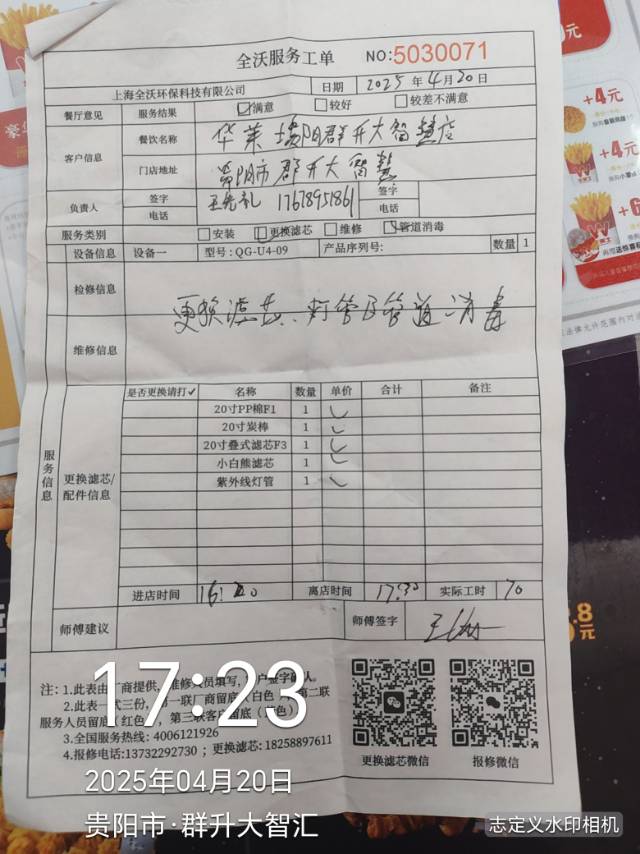 全沃服务工单 NO:5030071
上海全沃环保科技有限公司 日期 2025年4月20日
餐厅意见 服务结果 ☑满意 □较好 □较差不满意
客户信息 餐饮名称 华莱士贵阳群升大智慧店
门店地址 贵阳市群升大智慧
负责人 签字 签字
电话 17678951861 电话
服务类别 □安装 ☑更换滤芯 □维修 ☑管道消毒
设备信息 设备一 型号:QG-U4-09 产品序列号: 数量 1
检修信息
更换滤芯、灯管及管道消毒
维修信息
服务信息
更换滤芯/配件信息
是否更换请打✓ 名称 数量 单价 合计 备注
20寸PP棉F1 1 ✓
20寸炭棒 1 ✓
20寸叠式滤芯F3 1 ✓
小白熊滤芯 1 ✓
紫外线灯管 1 ✓
进店时间 16:20 离店时间 17:30 实际工时 70
师傅建议 师傅签字
注:1.此表由厂商提供,维修人员填写,客户签字确认。
2.此表一式三份,第一联厂商留底(白色),第二联
服务人员留底(红色),第三联客户留底(黄色)
3.全国服务热线:4006121926
4.报修电话:13732292730;更换滤芯:18258897611
更换滤芯微信 报修微信
17:23
2025年04月20日
贵阳市·群升大智汇
志定义水印相机
+4元
+4元